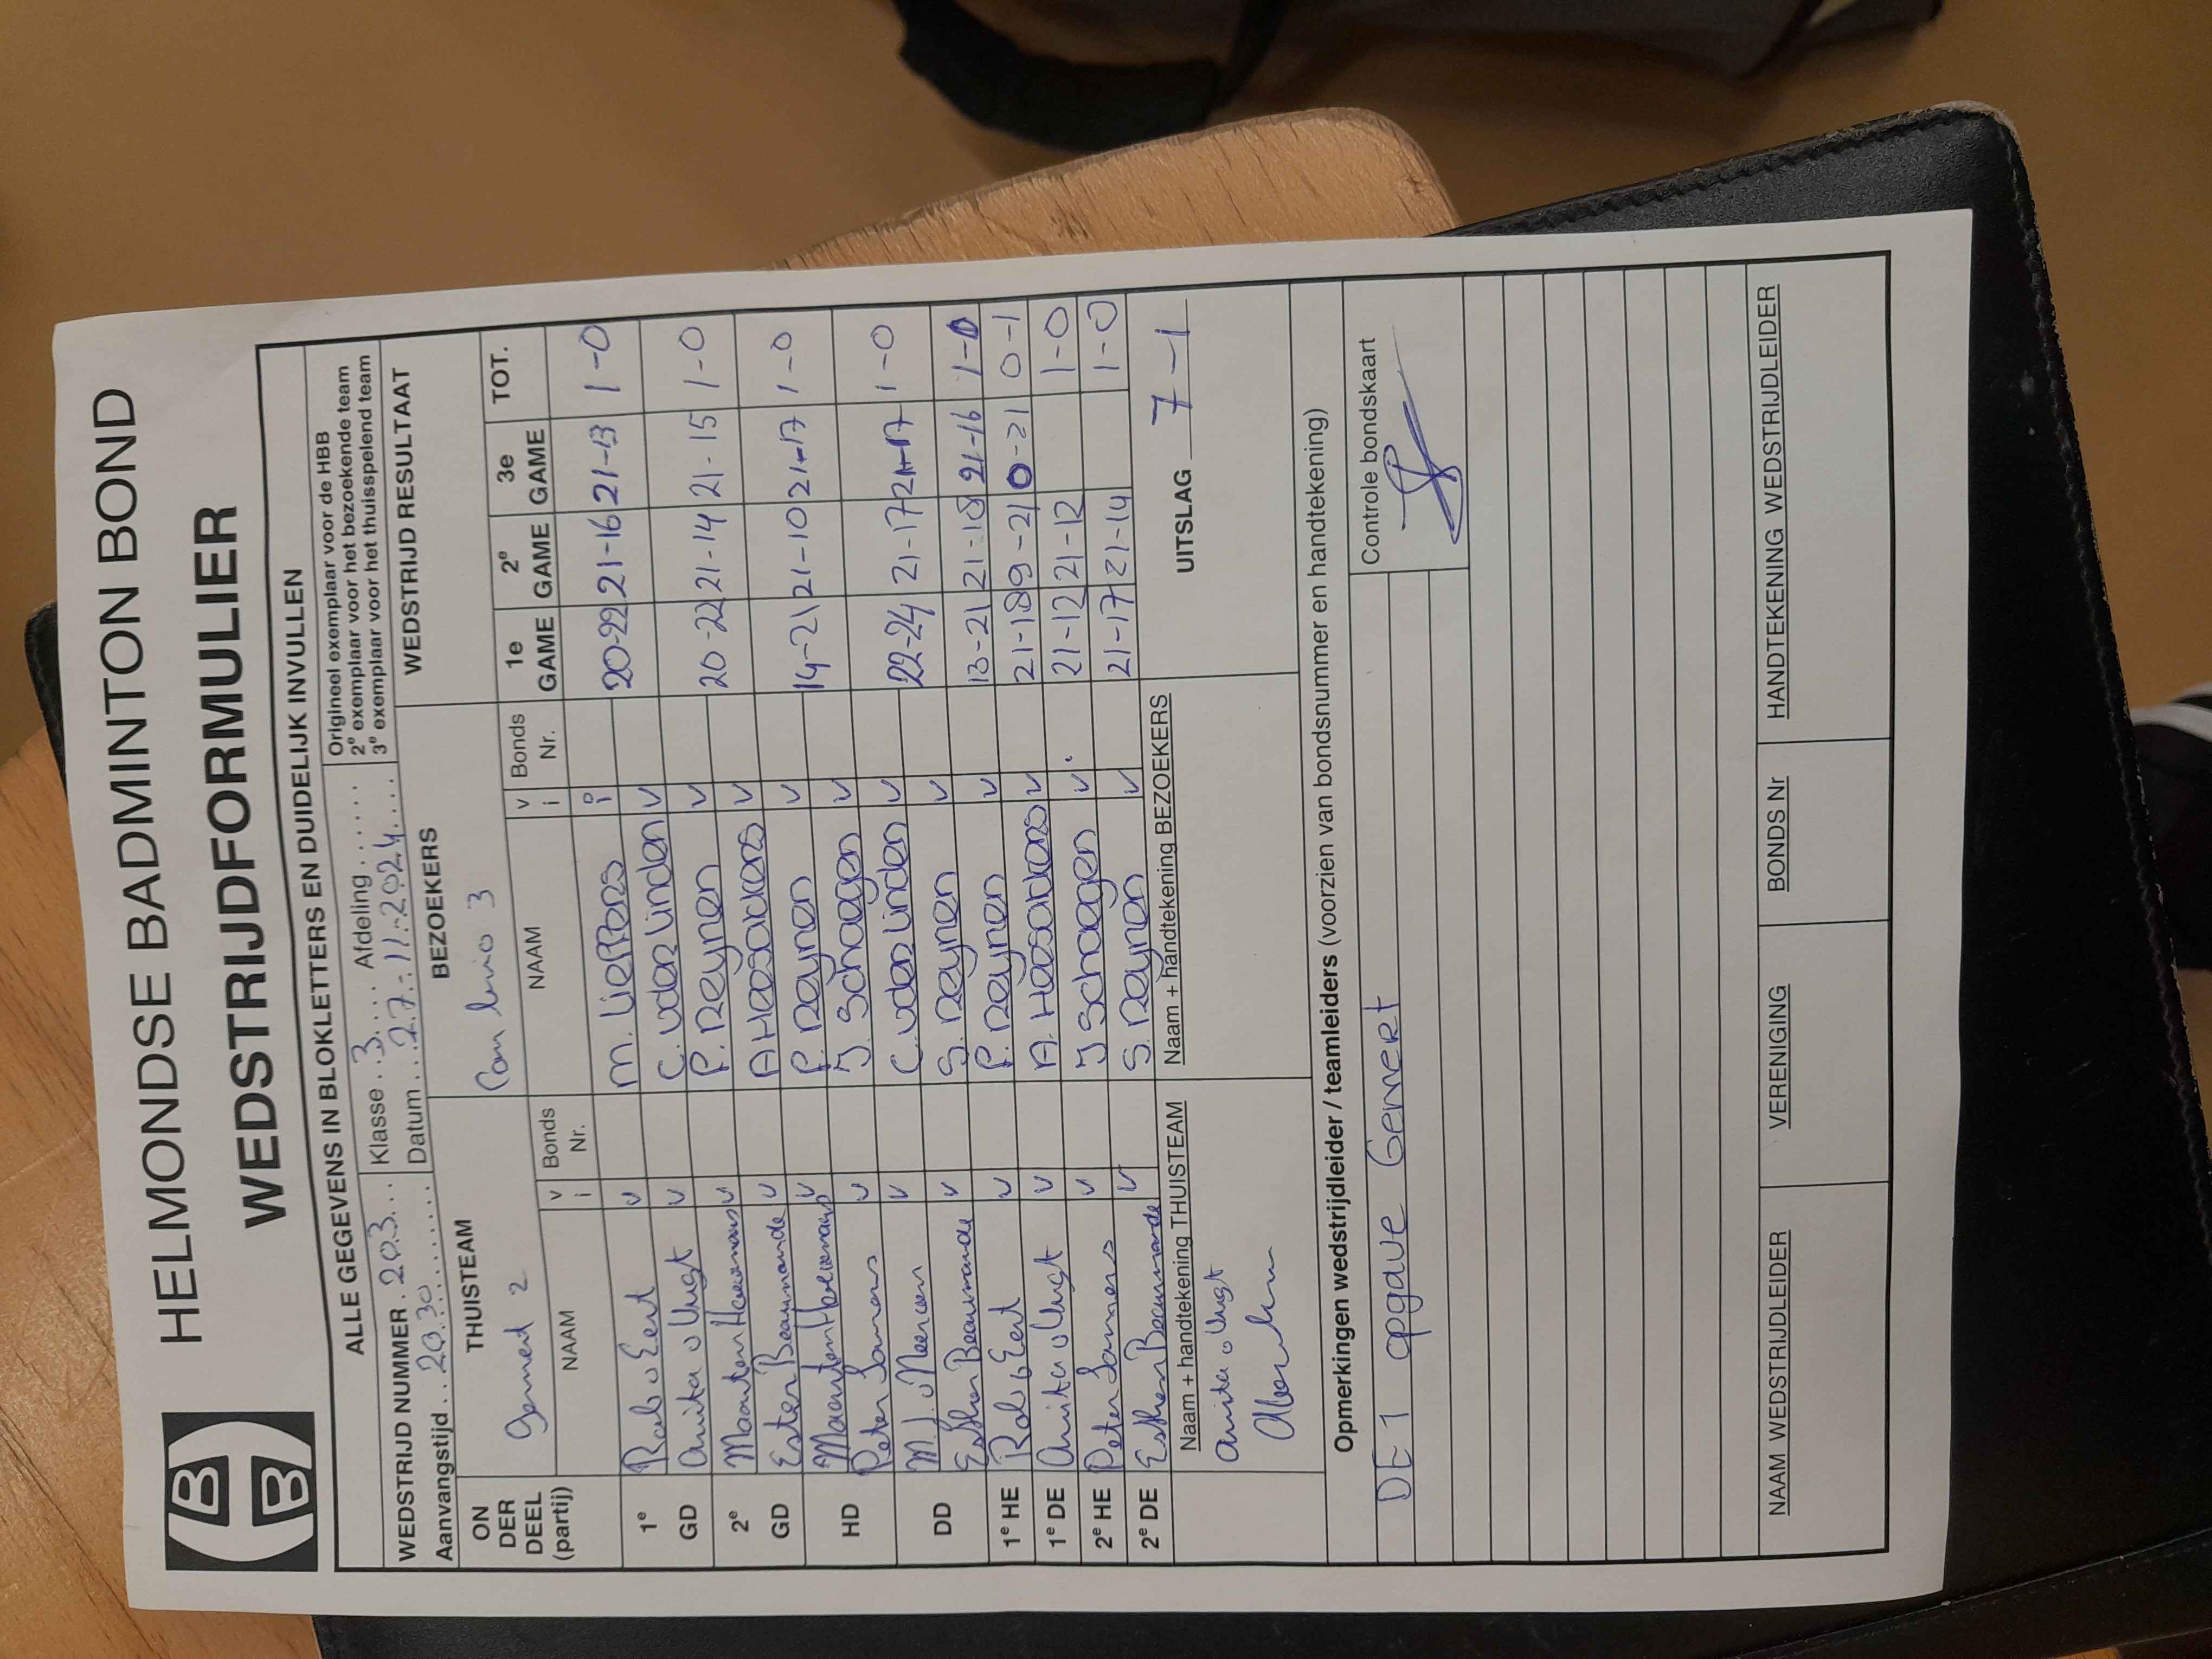 HELMONDSE BADMINTON BOND
WEDSTRIJDFORMULIER
ALLE GEGEVENS IN BLOKLETTERS EN DUIDELIJK INVULLEN
WEDSTRIJD NUMMER . 203 . . .
Klasse . . 3 . . . . Afdeling . . . . . . .
Origineel exemplaar voor de HBB
2e exemplaar voor het bezoekende team
3e exemplaar voor het thuisspelend team
Aanvangstijd . . 20.30 . . . . . . . .
Datum . . . 27-11-2024 . . . .
ON DER DEEL (partij)
THUISTEAM
BEZOEKERS
WEDSTRIJD RESULTAAT
Gemert 2
Con brio 3
NAAM v i Bonds Nr. NAAM v i Bonds Nr. 1e GAME 2e GAME 3e GAME TOT.
1e GD Rob v Eert v M. Lieffers i 20-22 21-16 21-13 1-0
Anita v Vugt v C. v der Linden v
2e GD Maarten v P. Reynen v 20-22 21-14 21-15 1-0
Ester Beaumande v A Hesackers v
HD Maarten v P. Reynen v 14-21 21-10 21-17 1-0
Peter Somers v J. Schaagen v
DD M. J. v Neerven v C. v der Linden v 22-24 21-17 21-17 1-0
Esther Beaumande v S. Reynen v
1e HE Rob v Eert v P. Reynen v 13-21 21-18 21-16 1-0
1e DE Anita v Vugt v A. Hesackers v 21-18 9-21 0-21 0-1
2e HE Peter Somers v J Schaagen v 21-12 21-12 1-0
2e DE Esther Beaumande v S. Reynen v 21-17 21-14 1-0
Naam + handtekening THUISTEAM
Naam + handtekening BEZOEKERS
UITSLAG 7-1
Anita v Vugt
Opmerkingen wedstrijdleider / teamleiders (voorzien van bondsnummer en handtekening)
DE 1 opgave Gemert
Controle bondskaart
NAAM WEDSTRIJDLEIDER
VERENIGING
BONDS Nr
HANDTEKENING WEDSTRIJDLEIDER